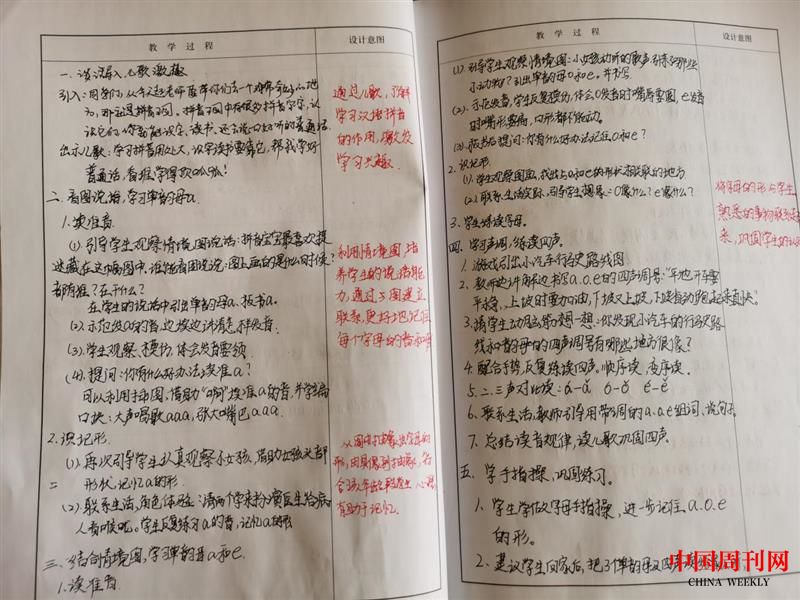 教学过程
设计意图
一、谈话导入,儿歌激趣
引入:同学们,从今天起老师要带你们去一个
方,那就是拼音王国。拼音王国中有很多拼音字母,认
识它们,小帮助能识字、读书,还会说一口好听的普通话
出示儿歌:学习拼音用处大,识字读书要靠它,帮我学好
普通话,看谁学得顶呱呱!
二、看图说话,学习单韵母a.
1.读准音
(1)引导学生观察情境图说话:拼音宝宝最喜欢捉
迷藏,在这幅图中,谁能看图说说:图上画的是什么时候?
都有谁?在干什么?
在学生的说话中引出单韵母a,板书a.
(2)示范发a的音,边按边讲清怎样发音.
(3)学生观察、模仿,体会发音要领.
(4)提问:你有什么好办法读准a?
可以利用插图,借助“啊”读准a的音,并学编
口诀:大声唱歌aaa,张大嘴巴aaa.
2.识记形.
(1)再次引导学生认真观察小女孩,借助女孩头部
形状,记忆a的形.
(2)联系生活,角色体验:请两个学来扮演医生给病
人看喉咙。学生反复练习a的音,记忆a的形
三、结合情境图,学习单韵母o和e.
1.读准音.
通过儿歌,了解
学习汉语拼音
的作用,激发
学习兴趣.
利用情境图,培
养学生的说话能
力,通过图建立
联系,更好地记住
每个字母的音和
从图中抽象出字母的
形,由具体到抽象,符
合
有助于记忆.
教学过程
设计意图
(1)引导学生观察情境图:小女孩动听的歌声引来了哪些
小动物?引出单韵母o和e.并书写.
(2)示范发音,学生反复模仿,体会o发音时嘴唇要圆,e发音
时嘴形要扁,口形都不能动.
(3)板书后提问:你有什么好办法记住o和e?
2.识记形.
(1)学生观察图画,找出与o和e的形状相关联的地方
(2)联系生活实际,引导学生想象:o像什么?e像什么?
3.学生练读字母.
四、学习声调,练读四声.
1.游戏引出小汽车行驶路线图.
2.教师边讲解边书写a.o.e的四声调号:“平地开车要
平稳,上坡时要加油,下坡又上坡,下坡自动跑起来直快”
3.请学生动脑筋想一想:你发现小汽车的行驶路
线和韵母的四声调号有哪些地方很像?
4.配合手势,反复练读四声.顺序读,变序读.
5.二、三声对比读:á—ǎ ó—ǒ é—ě
6.联系生活,教师引导用带调的a.o.e组词、说句子
7.总结读音规律,读儿歌巩固四声.
五、学手指操,巩固练习.
1.学生学做字母手指操,进一步记住a.o.e
的形.
2.建议学生回家后,把3个单韵母及四声读
将字母的形与学生
熟悉的事物联系起
来,巩固学生的
中国周刊网
CHINA WEEKLY